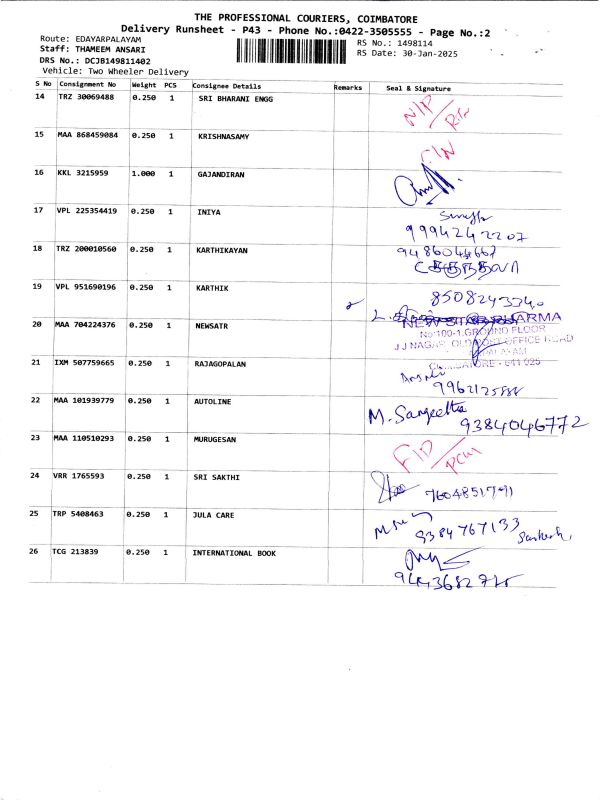 THE PROFESSIONAL COURIERS, COIMBATORE
Delivery Runsheet - P43 - Phone No.:0422-3505555 - Page No.:2
Route: EDAYARPALAYAM
RS No.: 1498114
Staff: THAMEEM ANSARI
RS Date: 30-Jan-2025
DRS No.: DCJB149811402
Vehicle: Two Wheeler Delivery
S No Consignment No Weight PCS Consignee Details Remarks Seal & Signature
14 TRZ 30069488 0.250 1 SRI BHARANI ENGG N/P
15 MAA 868459084 0.250 1 KRISHNASAMY
16 KKL 3215959 1.000 1 GAJANDIRAN
17 VPL 225354419 0.250 1 INIYA
9994242207
18 TRZ 200010560 0.250 1 KARTHIKAYAN
19 VPL 951690196 0.250 1 KARTHIK 8508243340
20 MAA 704224376 0.250 1 NEWSATR NEW STAR PHARMA
No:100-1,GROUND FLOOR
J J NAGAR, OLD POST OFFICE ROAD
COIMBATORE - 641 025
21 IXM 507759665 0.250 1 RAJAGOPALAN
22 MAA 101939779 0.250 1 AUTOLINE M. Sangeetha
9384046772
23 MAA 110510293 0.250 1 MURUGESAN
24 VRR 1765593 0.250 1 SRI SAKTHI
25 TRP 5408463 0.250 1 JULA CARE
9384767133
26 TCG 213839 0.250 1 INTERNATIONAL BOOK